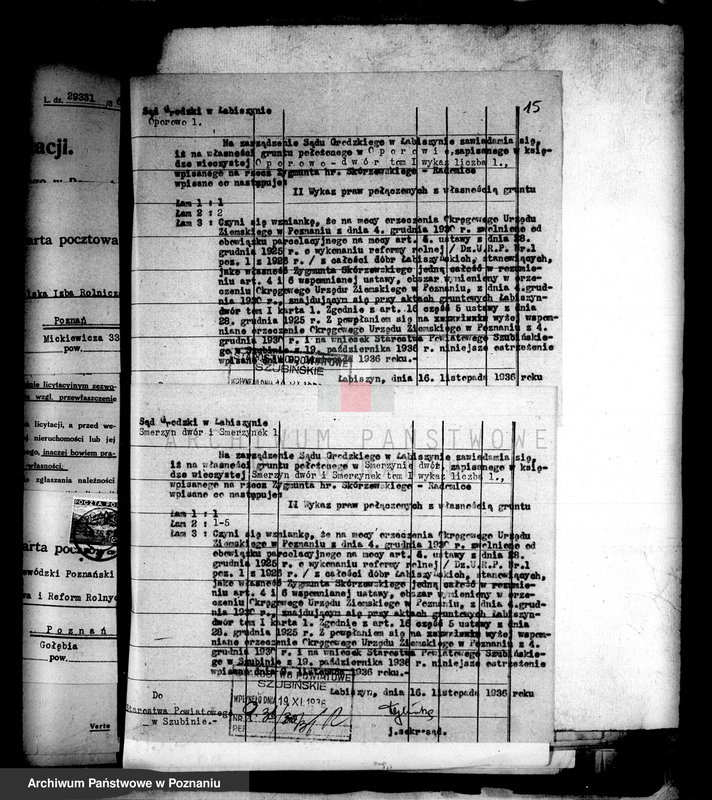 L. dz. 29331
acji.
arta pocztowa
lska Izba Rolnicz
Poznań
Mickiewicza 33
pow.
nie licytacyjnym zezwo-
wzgl. przewłaszczenie
licytacji, a przed we-
j nieruchomości lub jej
nego, inaczej bowiem pra-
własności.
zgłaszania należności
POCZTA PO
arta poc
ewódzki Poznański
a i Reform Rolny
Poznań
Gołębia
pow.
Verte
15
Sąd Grodzki w Łabiszynie
Oporowo 1.
Na zarządzenie Sądu Grodzkiego w Łabiszynie zawiadamia się,
iż na własności gruntu położonego w Oporowie, zapisanego w księ-
dze wieczystej Oporowo-dwór tom I wykaz liczba 1.,
wpisanego na rzecz Zygmunta hr. Skórzewskiego - Radomice
wpisano co następuje:
II Wykaz praw połączonych z własnością gruntu
Łam 1 : 1
Łam 2 : 2
Łam 3 : Czyni się wzmiankę, że na mocy orzeczenia Okręgowego Urzędu
Ziemskiego w Poznaniu z dnia 4. grudnia 1930 r. zwolnione od
obowiązku parcelacyjnego na mocy art. 4. ustawy z dnia 28.
grudnia 1925 r. o wykonaniu reformy rolnej / Dz.U.R.P. Nr.1
poz. 1 z 1926 r. / z całości dóbr Łabiszyńskich, stanowiących,
jako własność Zygmunta Skórzewskiego jedną całość w rozumie-
niu art. 4 i 6 wspomnianej ustawy, obszar wymieniony w orze-
czeniu Okręgowego Urzędu Ziemskiego w Poznaniu, z dnia 4.grud-
nia 1930 r., znajdującym się przy aktach gruntowych Łabiszyn-
dwór tom I karta 1. Zgodnie z art. 16 część 5 ustawy z dnia
28. grudnia 1925 r. Z powołaniem się na wyżej wspom-
niane orzeczenie Okręgowego Urzędu Ziemskiego w Poznaniu z 4.
grudnia 1930 r. i na wniosek Starostwa Powiatowego Szubińskie-
go w Szubinie z 19. października 1936 r. niniejsze ostrzeżenie
wpisano dnia listopada 1936 roku.-
WO POWIATOWE
SZUBIŃSKIE
Łabiszyn, dnia 16. listopada 1936 roku
ARCHIWUM PAŃSTWOWE
Sąd Grodzki w Łabiszynie
Smerzyn dwór i Smerzynek 1.
Na zarządzenie Sądu Grodzkiego w Łabiszynie zawiadamia się,
iż na własności gruntu położonego w Smerzynie dwór, zapisanego w księ-
dze wieczystej Smerzyn dwór i Smerzynek tom I wykaz liczba 1.,
wpisanego na rzecz Zygmunta hr. Skórzewskiego - Radomice
wpisano co następuje:
II Wykaz praw połączonych z własnością gruntu
Łam 1 : 1
Łam 2 : 1-5
Łam 3 : Czyni się wzmiankę, że na mocy orzeczenia Okręgowego Urzędu
Ziemskiego w Poznaniu z dnia 4. grudnia 1930 r. zwolnione od
obowiązku parcelacyjnego na mocy art. 4. ustawy z dnia 28.
grudnia 1925 r. o wykonaniu reformy rolnej / Dz.U.R.P. Nr.1
poz. 1 z 1926 r. / z całości dóbr Łabiszyńskich, stanowiących,
jako własność Zygmunta Skórzewskiego jedną całość w rozumie-
niu art. 4 i 6 wspomnianej ustawy, obszar wymieniony w orze-
czeniu Okręgowego Urzędu Ziemskiego w Poznaniu, z dnia 4.grud-
nia 1930 r., znajdującym się przy aktach gruntowych Łabiszyn-
dwór tom I karta 1. Zgodnie z art. 16 część 5 ustawy z dnia
28. grudnia 1925 r. Z powołaniem się na wyżej wspom-
niane orzeczenie Okręgowego Urzędu Ziemskiego w Poznaniu z 4.
grudnia 1930 r. i na wniosek Starostwa Powiatowego Szubińskie-
go w Szubinie z 19. października 1936 r. niniejsze ostrzeżenie
wpisano dnia listopada 1936 roku.-
WO POWIATOWE
SZUBIŃSKIE
WPŁYNĘŁO DNIA 19 XI.1936
Łabiszyn, dnia 16. listopada 1936 roku
Do
Starostwa Powiatowego
w Szubinie.-
j.sekr.sąd.
Archiwum Państwowe w Poznaniu